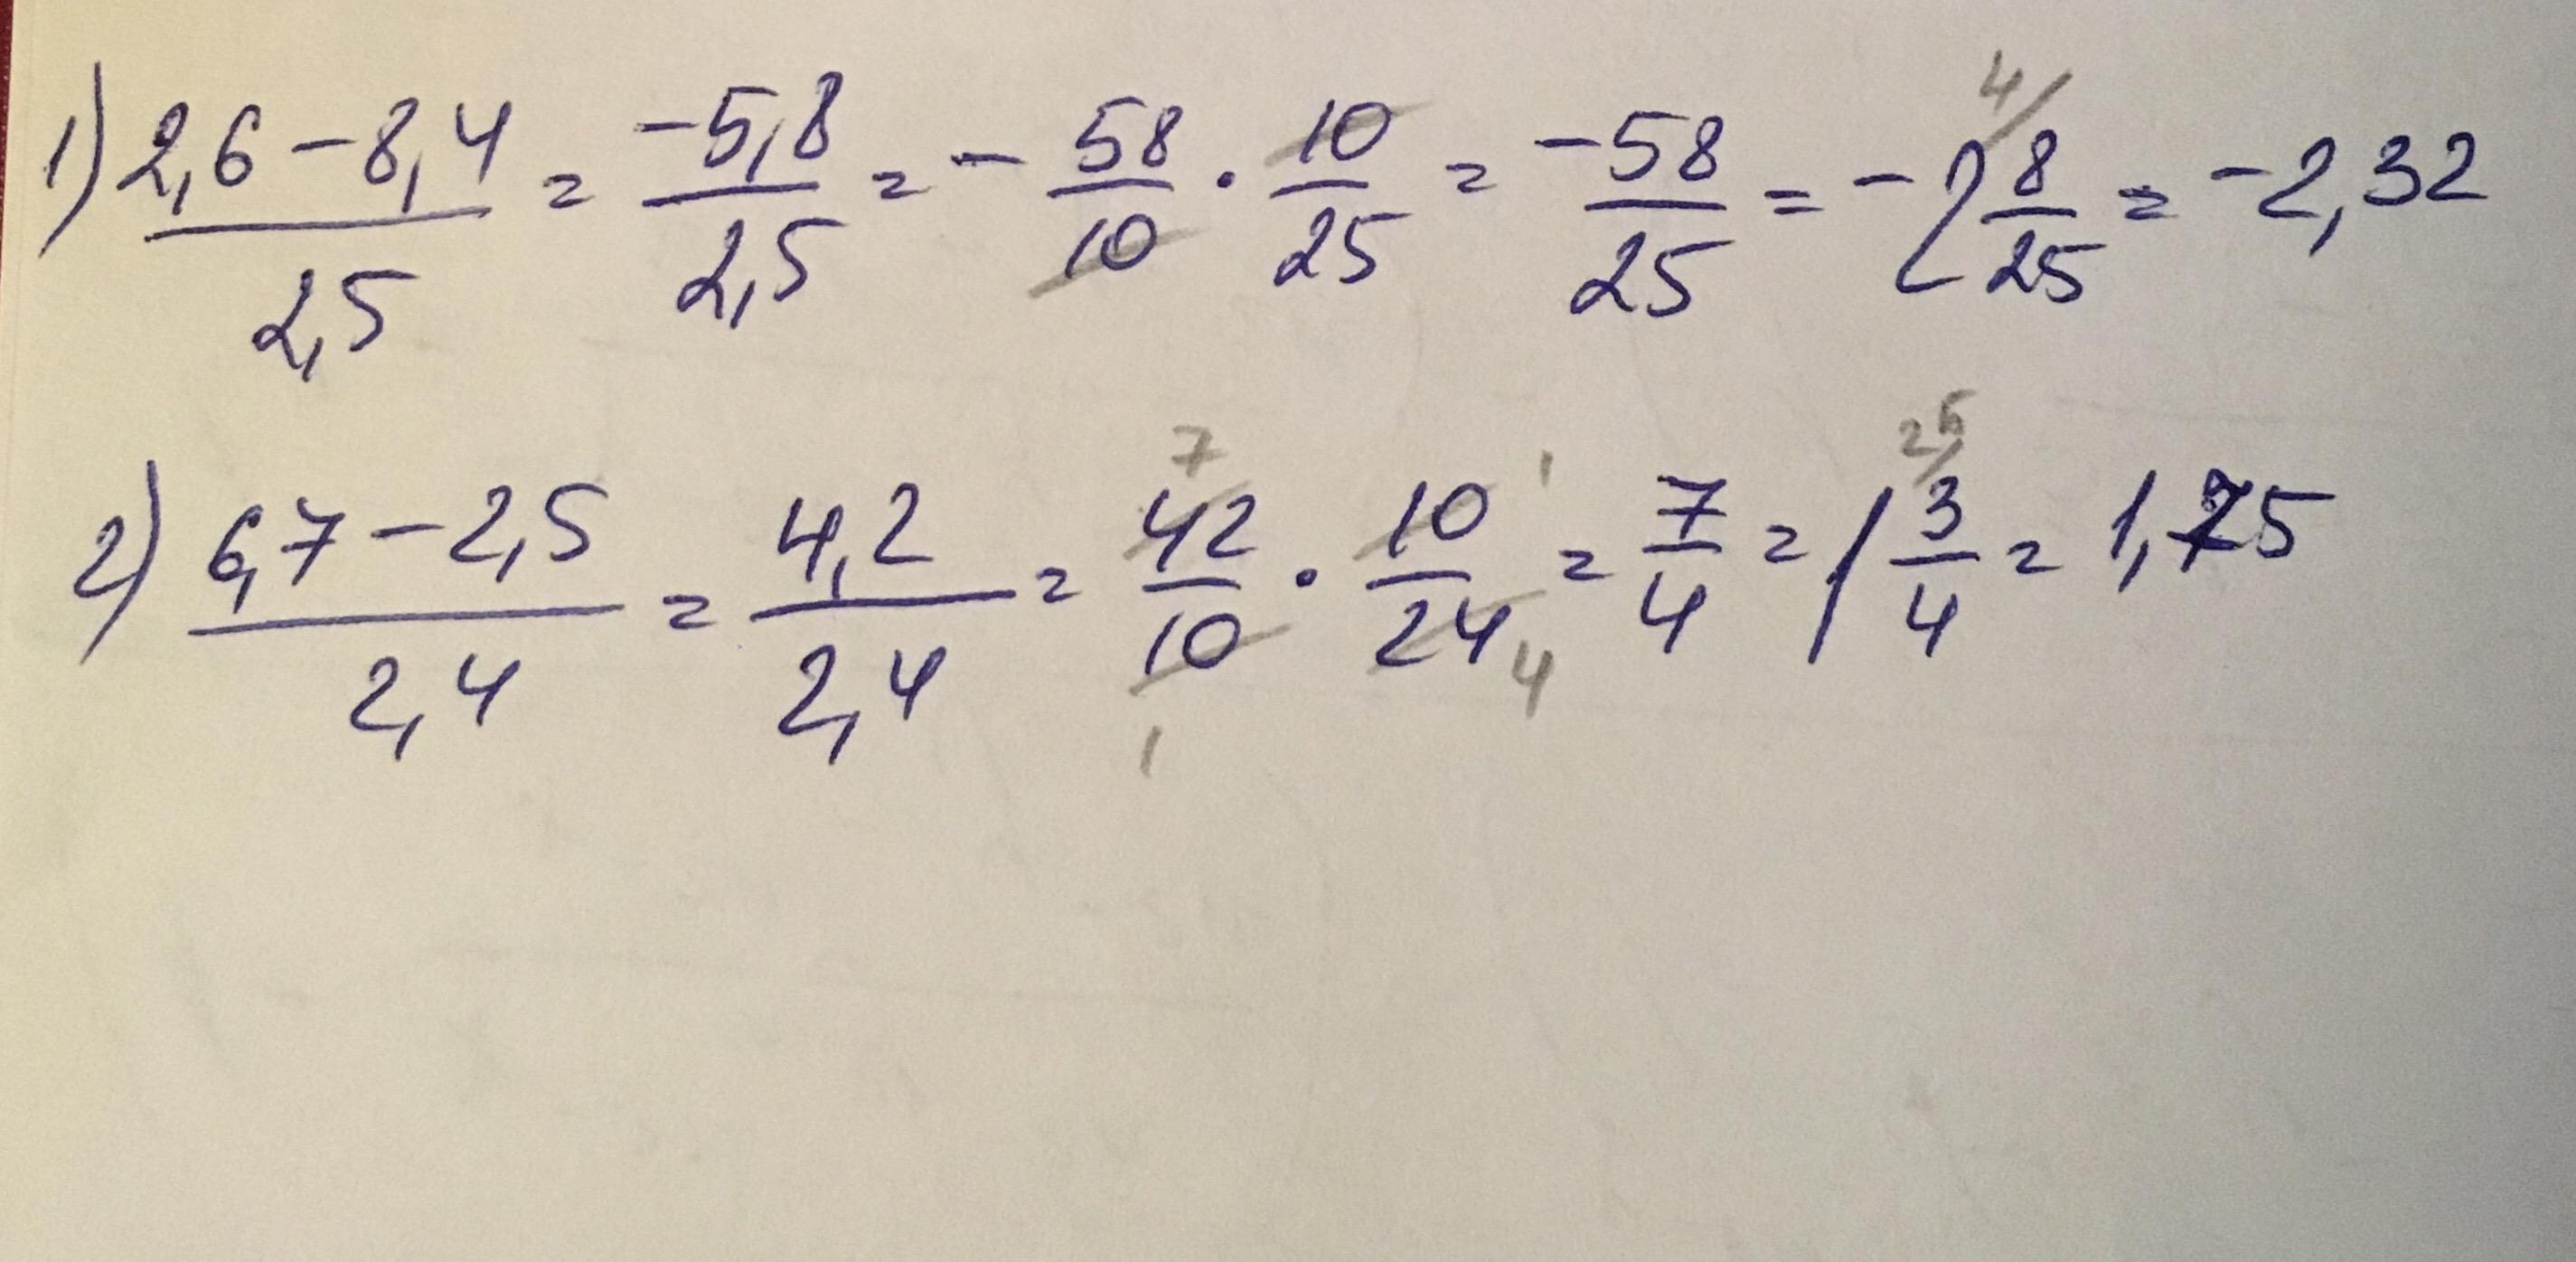 1) (2,6 - 8,4)/2,5 = -5,8/2,5 = - 58/10 · 10/25 = -58/25 = -2 8/25 4/ = -2,32
2) (6,7 - 2,5)/2,4 = 4,2/2,4 = 42/10 7 1 · 10/24 1 4 = 7/4 = 1 3/4 25/ = 1,75